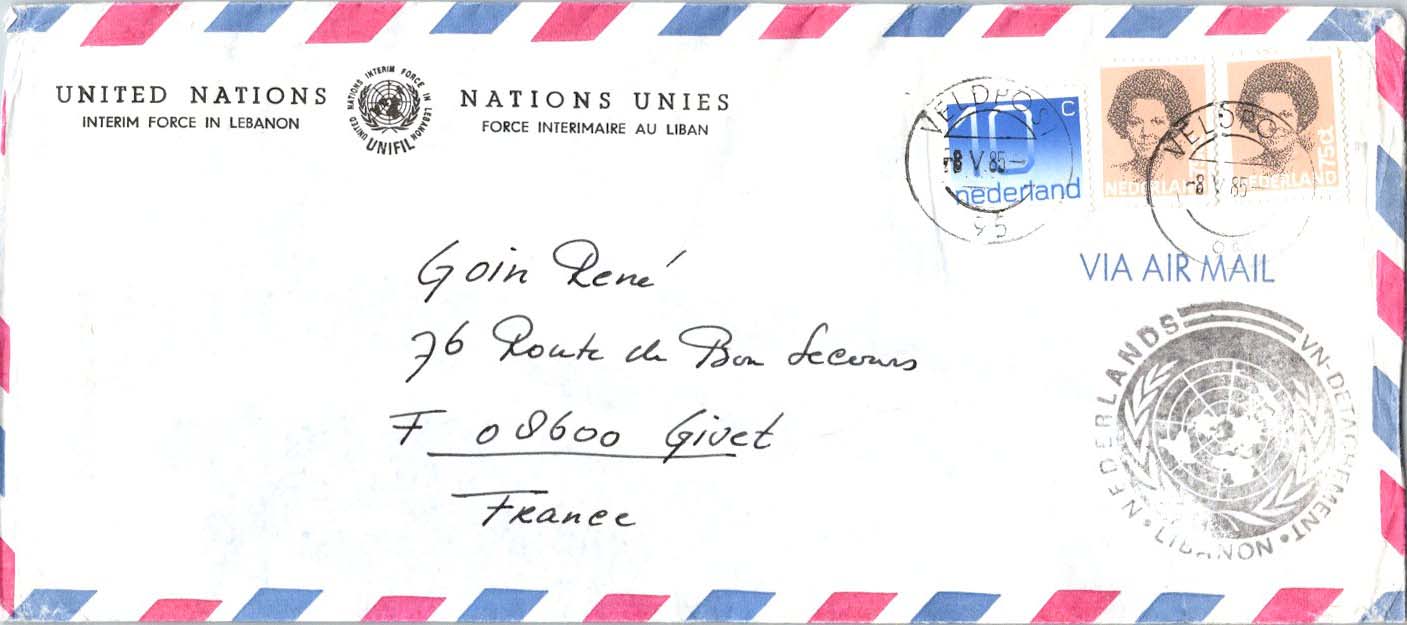 UNITED NATIONS
INTERIM FORCE IN LEBANON
UNITED NATIONS INTERIM FORCE IN LEBANON
UNIFIL
NATIONS UNIES
FORCE INTERIMAIRE AU LIBAN
10 C
nederland
VELDPOST
-8 V 85-
NEDERLAND
75ct
NEDERLAND
VELDPO
-8 V 85-
VIA AIR MAIL
Goin René
76 Route de Bon Secours
F 08600 Givet
France
NEDERLANDS VN-DETACHEMENT • LIBANON •